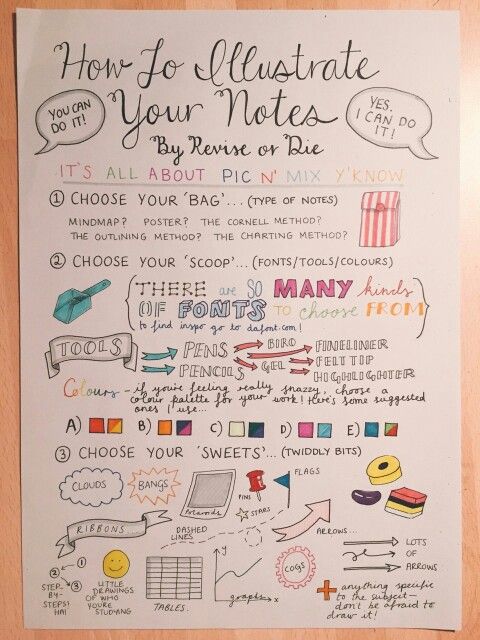 How To Illustrate
Your Notes
YOU CAN
DO IT!
YES,
I CAN DO
IT!
By Revise or Die
IT'S ALL ABOUT PIC N' MIX Y'KNOW
① CHOOSE YOUR 'BAG'... (TYPE OF NOTES)
MINDMAP? POSTER? THE CORNELL METHOD?
THE OUTLINING METHOD? THE CHARTING METHOD?
② CHOOSE YOUR 'SCOOP'... (FONTS/TOOLS/COLOURS)
THERE are SO MANY kinds
OF FONTS TO choose FROM
to find inspo go to dafont.com!
TOOLS
PENS
PENCILS
BIRO
GEL
FINELINER
FELT TIP
HIGHLIGHTER
Colours - if you're feeling really snazzy, choose a
colour palette for your work! Here's some suggested
ones I use...
A) B) C) D) E)
③ CHOOSE YOUR 'SWEETS'... (TWIDDLY BITS)
CLOUDS
BANGS
Polaroids
PINS
FLAGS
STARS
RIBBONS.....
DASHED
LINES
ARROWS...
② ①
③
STEP-
BY-
STEPS!
HA!
LITTLE
DRAWINGS
OF WHO
YOU'RE
STUDYING
TABLES.
y
graphs
x
COGS
LOTS
OF
ARROWS
+ anything specific
to the subject-
don't be afraid to
draw it!